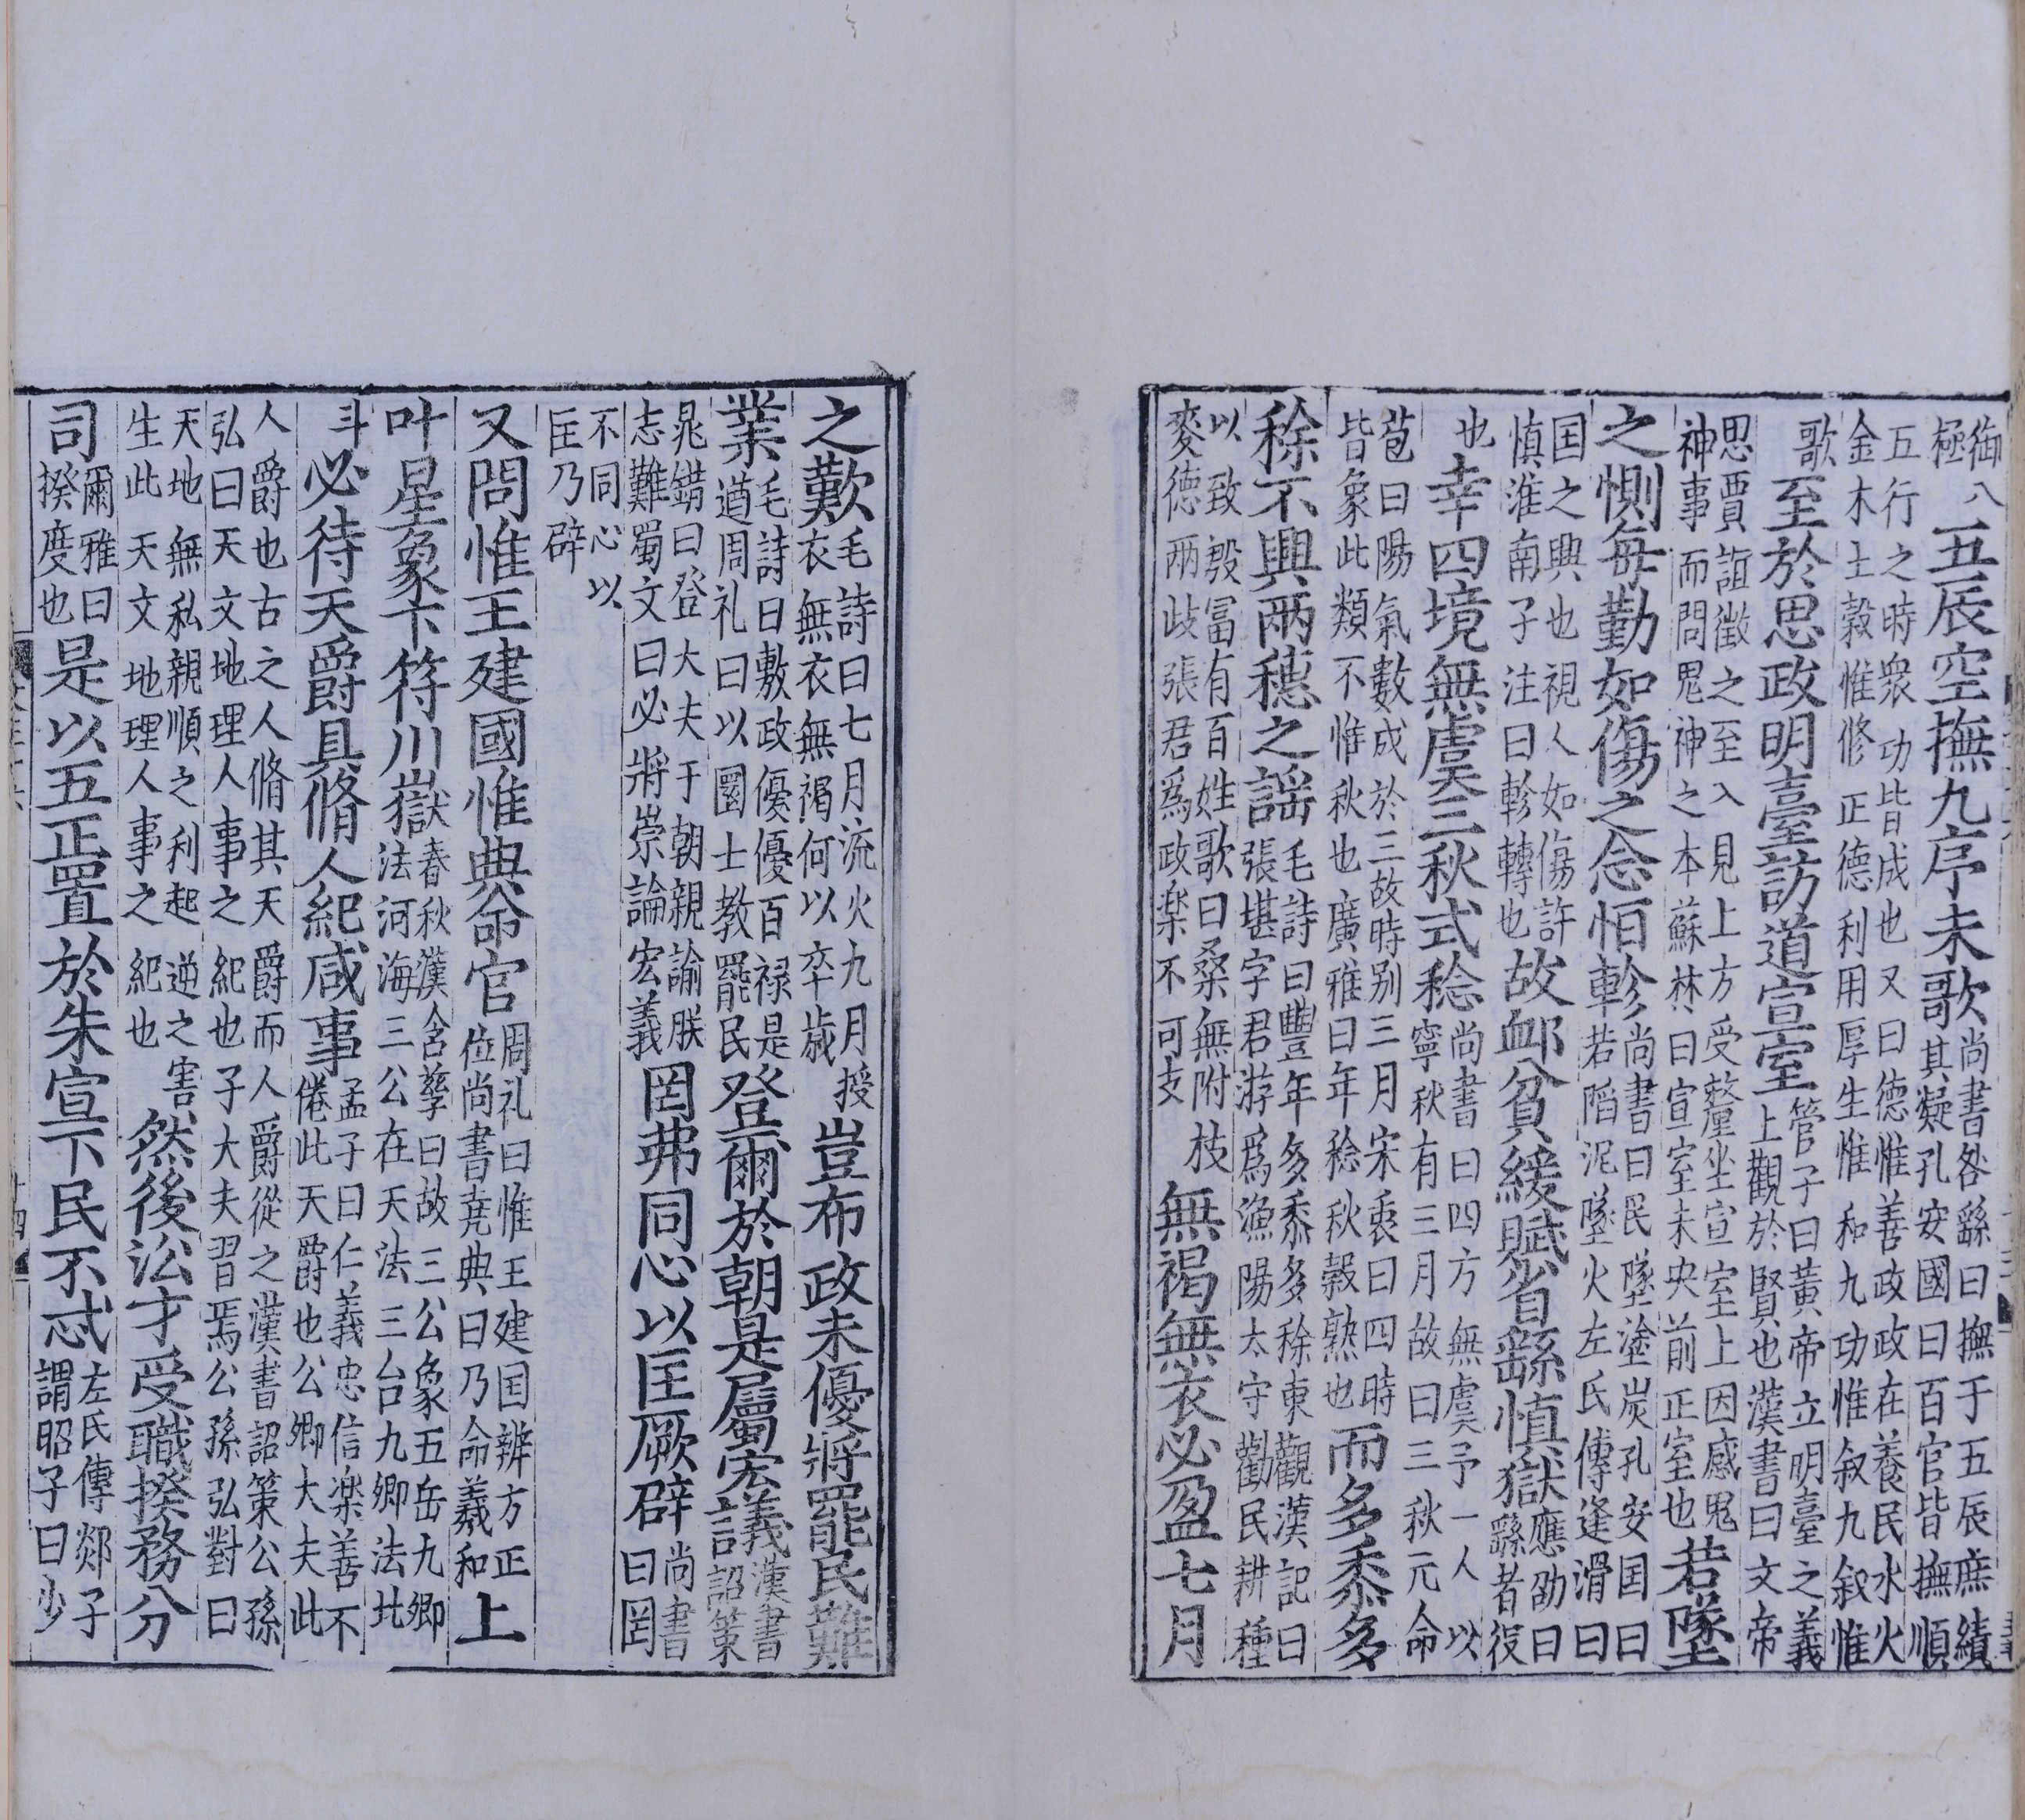 御八極五辰空撫九序未歌尚書咎繇曰撫于五辰庶績其凝孔安國曰百官皆撫順
五行之時衆功皆成也又曰德惟善政政在養民水火金木土穀惟修正德利用厚生惟和九功惟叙九叙惟
歌至於思政明臺訪道宣室管子曰黃帝立明臺之義上觀於賢也漢書曰文帝
思賈誼徵之至入見上方受釐坐宣室上因感鬼神事而問鬼神之本蘇林曰宣室未央前正室也若墜
之惻每勤如傷之念恒軫尚書曰民墜塗炭孔安国曰若陷泥墜火左氏傳逢滑曰
国之興也視人如傷許慎淮南子注曰軫轉也故䘏貧緩賦省繇慎獄應劭曰繇者役
也幸四境無虞三秋式稔尚書曰四方無虞予一人以寧秋有三月故曰三秋元命
苞曰陽氣數成於三故時别三月宋衷曰四時皆象此類不惟秋也廣雅曰年稔秋穀熟也而多黍多
稌不興兩穗之謡毛詩曰豐年多黍多稌東觀漢記曰張堪字君游爲漁陽太守勸民耕種
以致殷冨有百姓歌曰桑無附枝麥德兩歧張君爲政楽不可支無褐無衣必盈七月
之歎毛詩曰七月流火九月授衣無衣無褐何以卒歲豈布政未優將罷民難
業毛詩曰敷政優優百禄是遒周礼曰以圜士教罷民登爾於朝是屬宏議漢書詔策
晁錯曰登大夫于朝親諭朕志難蜀文曰必將崇論宏義罔弗同心以匡厥辟尚書曰罔
不同心以匡乃辟
又問惟王建國惟典命官周礼曰惟王建国辨方正位尚書堯典曰乃命羲和上
叶星象下符川嶽春秋漢含孳曰故三公象五岳九卿法河海三公在天法三台九卿法北
斗必待天爵具脩人紀咸事孟子曰仁義忠信楽善不倦此天爵也公卿大夫此
人爵也古之人脩其天爵而人爵從之漢書詔策公孫弘曰天文地理人事之紀也子大夫習焉公孫弘對曰
天地無私親順之利起逆之害生此天文地理人事之紀也然後㳂才受職揆務分
司爾雅曰揆度也是以五正置於朱宣下民不忒左氏傳郯子謂昭子曰少